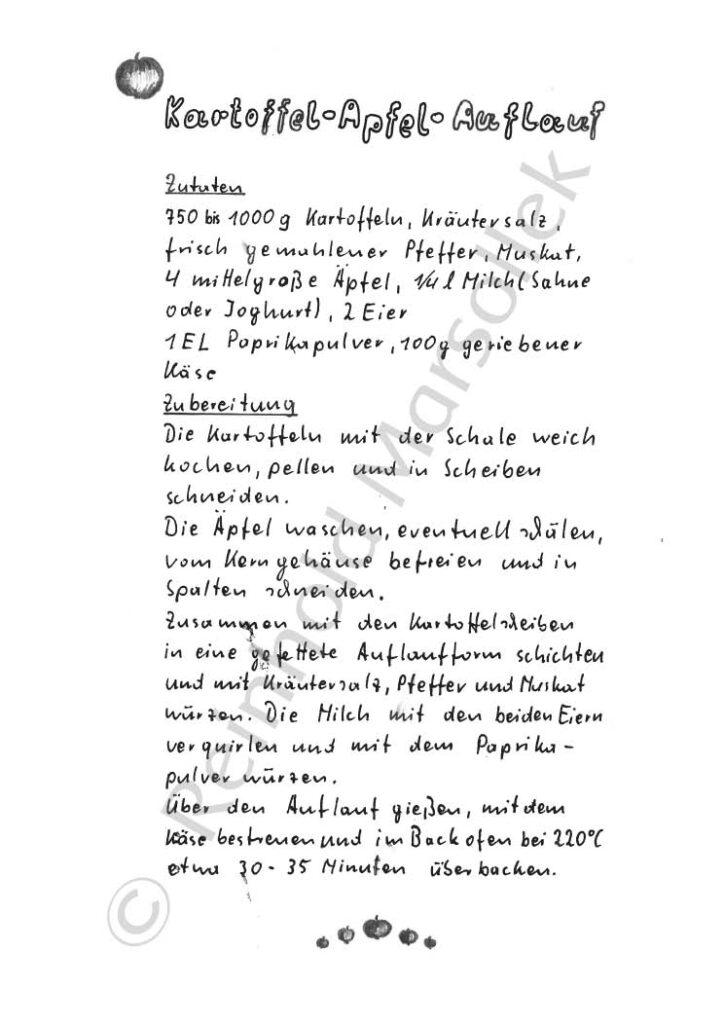 Kartoffel-Apfel-Auflauf
Zutaten
750 bis 1000 g Kartoffeln, Kräutersalz,
frisch gemahlener Pfeffer, Muskat,
4 mittelgroße Äpfel, 1/4 l Milch (Sahne
oder Joghurt), 2 Eier
1 EL Paprikapulver, 100g geriebener
Käse
Zubereitung
Die Kartoffeln mit der Schale weich
kochen, pellen und in Scheiben
schneiden.
Die Äpfel waschen, eventuell schälen,
vom Kerngehäuse befreien und in
Spalten schneiden.
Zusammen mit den Kartoffelscheiben
in eine gefettete Auflaufform schichten
und mit Kräutersalz, Pfeffer und Muskat
würzen. Die Milch mit den beiden Eiern
verquirlen und mit dem Paprika-
pulver würzen.
Über den Auflauf gießen, mit dem
Käse bestreuen und im Backofen bei 220°C
etwa 30-35 Minuten überbacken.
© Reinhold Marsollek